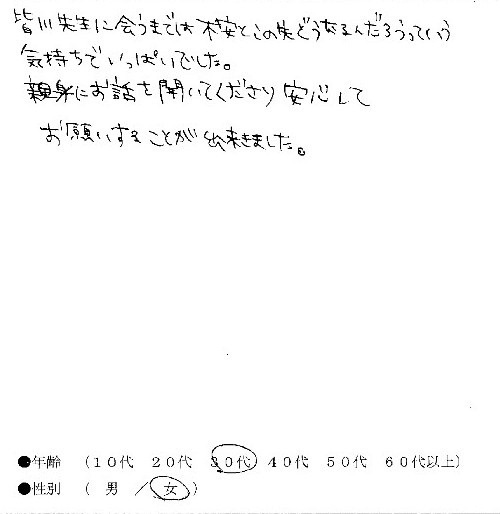 皆川先生に会うまでは不安とこの先どうなるんだろうっていう
気持ちでいっぱいでした。
親身にお話を聞いてくださり安心して
お願いすることが出来きました。
●年齢 （１０代 ２０代 ３０代 ４０代 ５０代 ６０代以上）
●性別 （ 男 ／ 女 ）